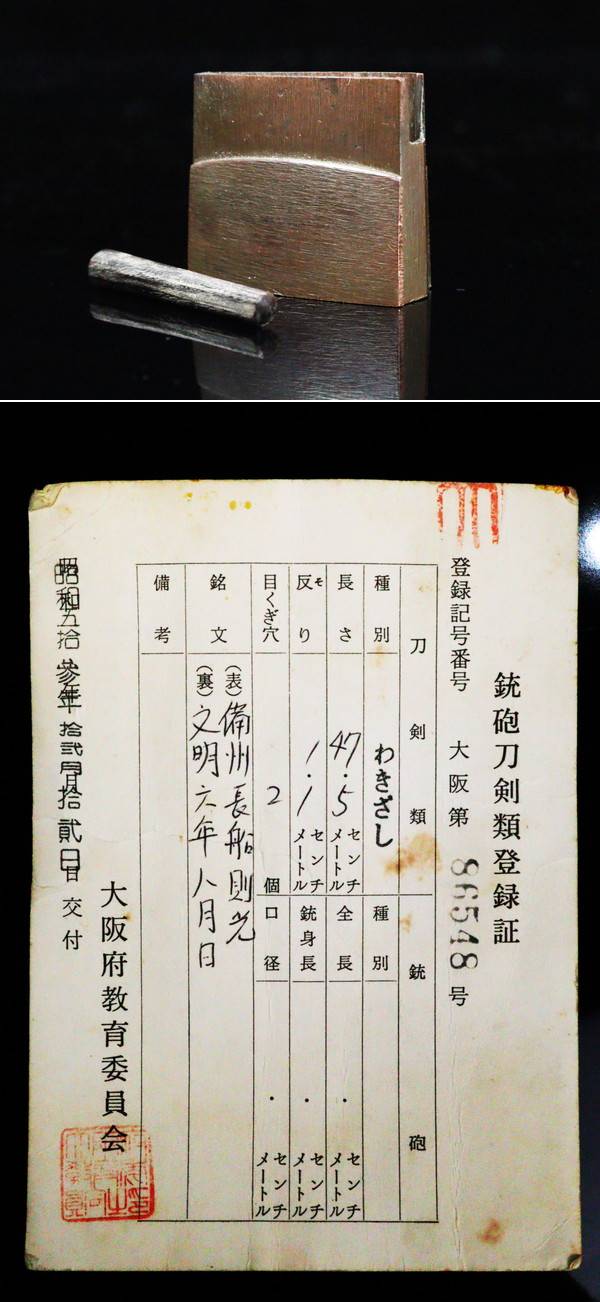 銃砲刀剣類登録証
登録記号番号 大阪第 86548 号
刀剣類
種別 わきざし
長さ 47.5 センチメートル
反り 1.1 センチメートル
目くぎ穴 2 個
銘文 (表) 備州長船則光
(裏) 文明六年八月日
備考
銃砲
種別
全長 . センチメートル
銃身長 . センチメートル
口径 . センチメートル
昭和五拾参年拾弐月拾弐日交付
大阪府教育委員会